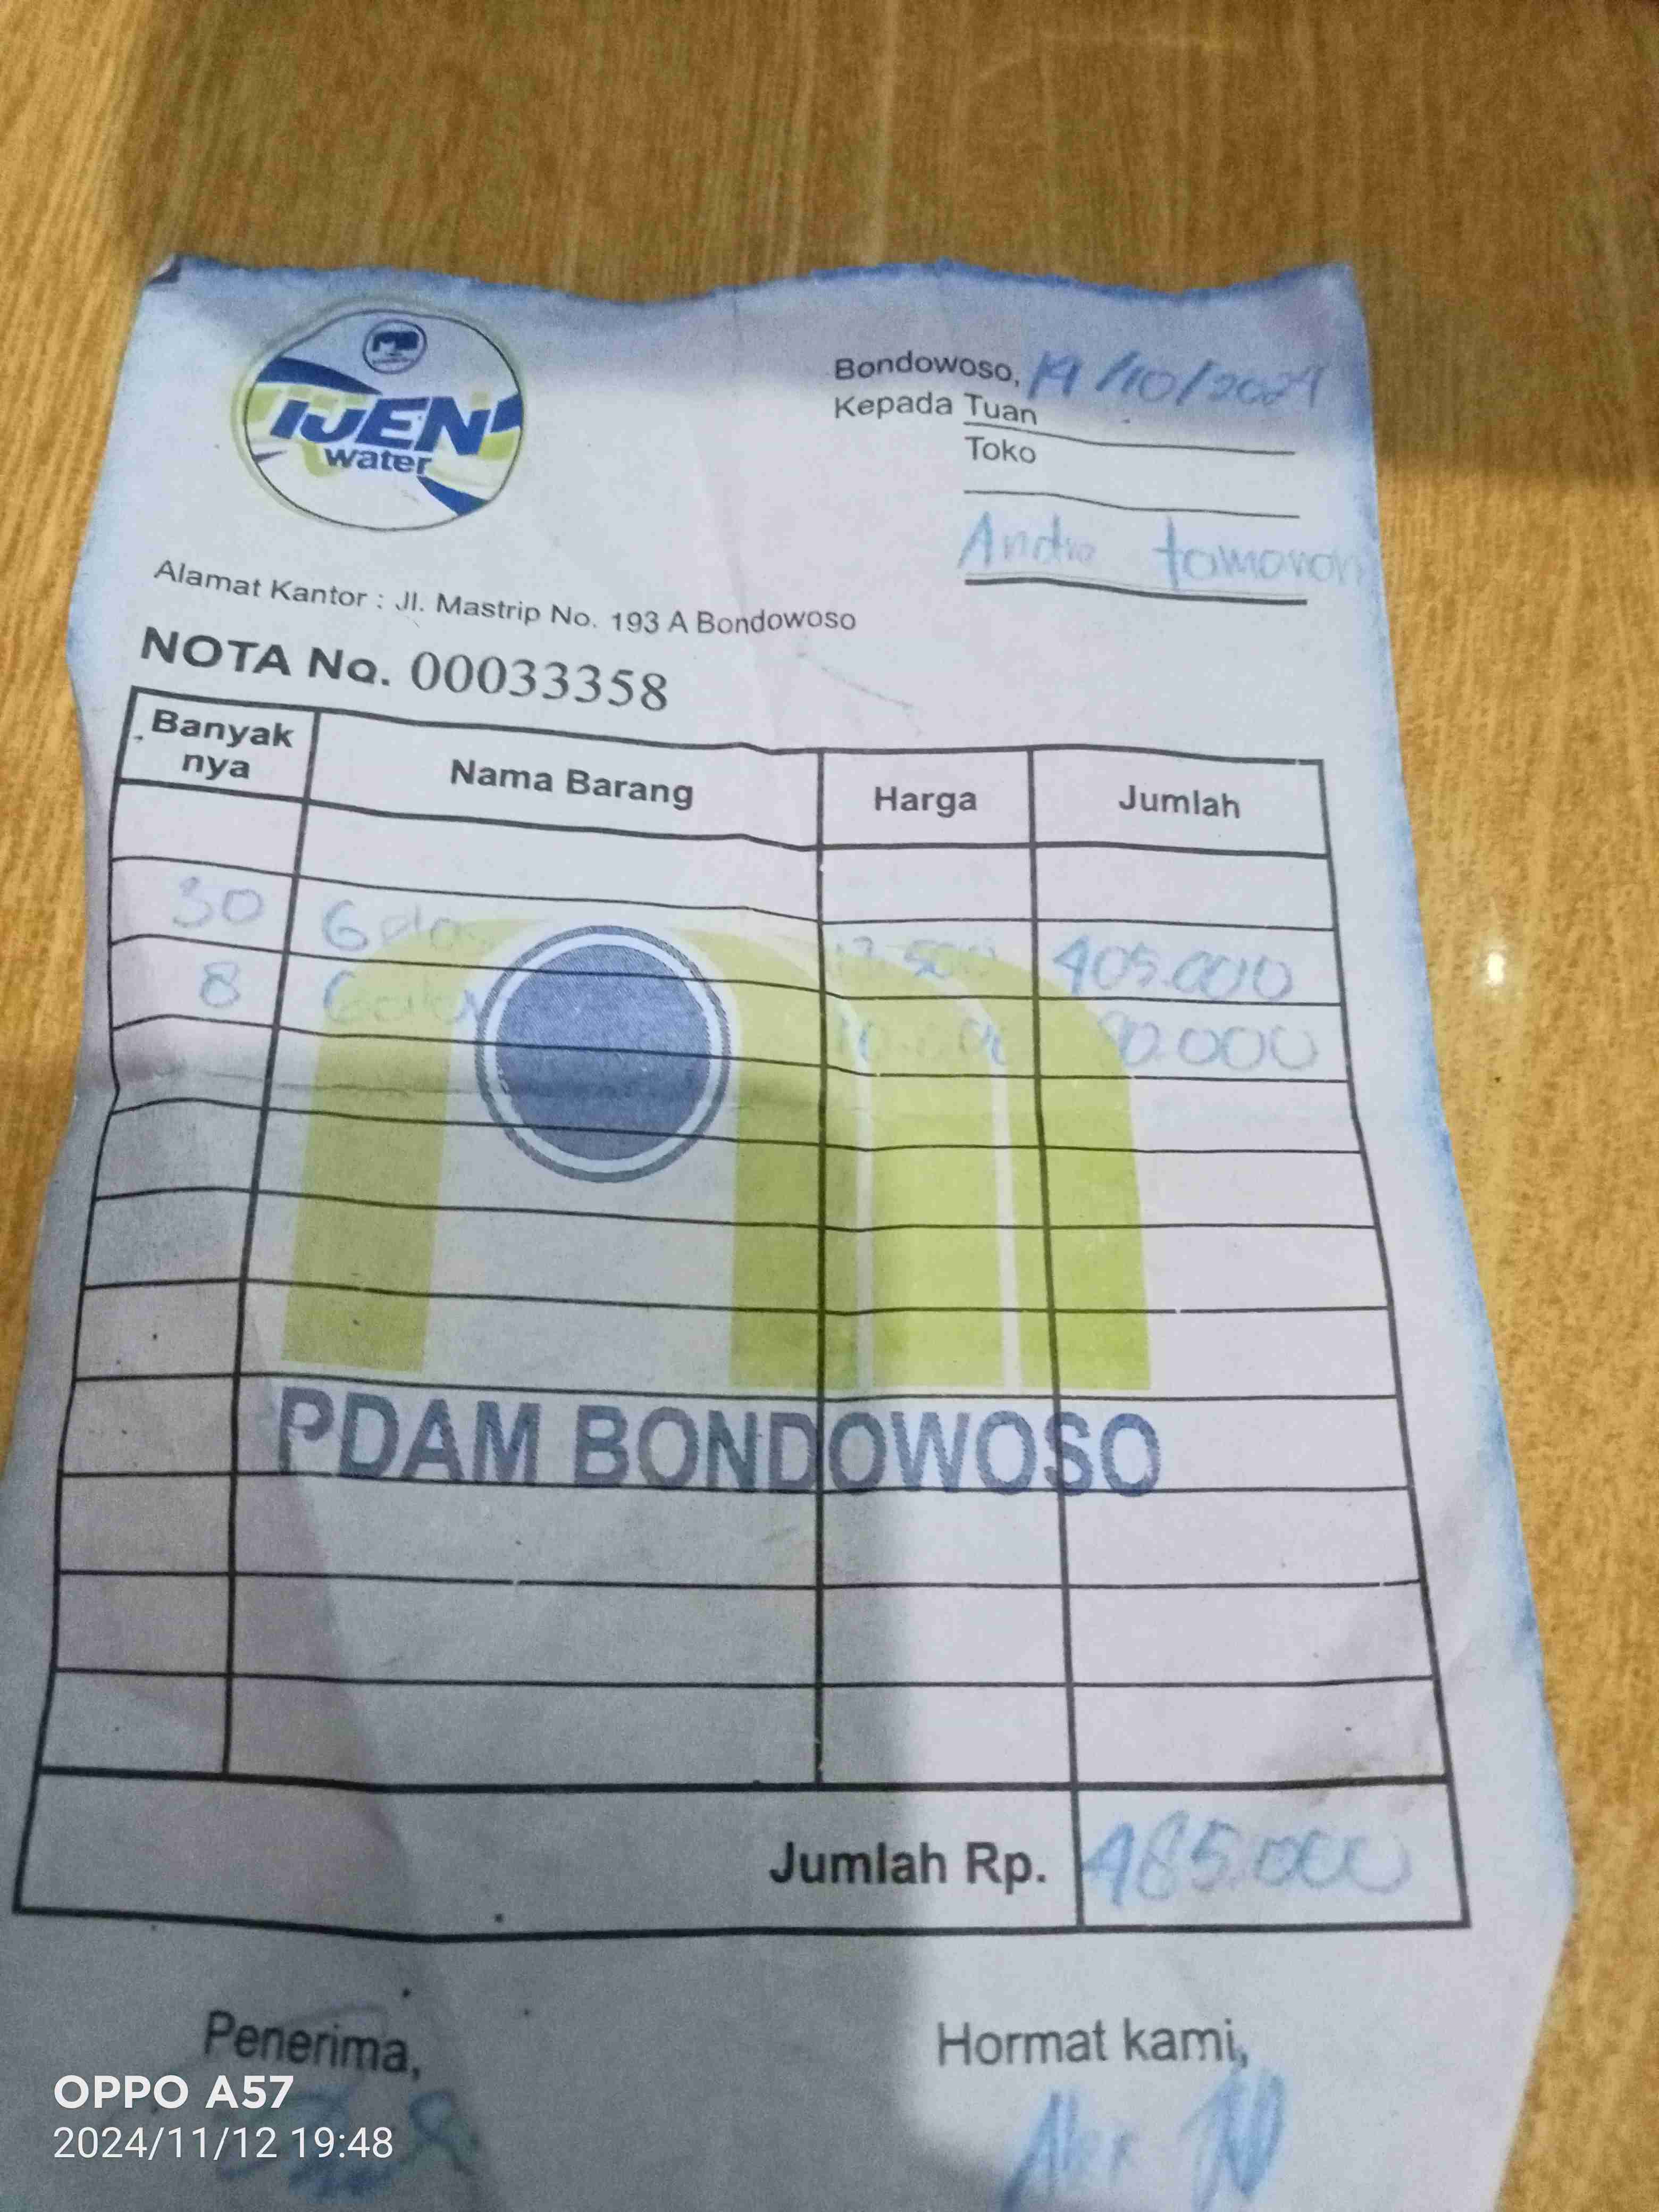 IJEN
water
Bondowoso, 19/10/2024
Kepada Tuan
Toko
Andre tamanan
Alamat Kantor : Jl. Mastrip No. 193 A Bondowoso
NOTA No. 00033358
Banyak nya Nama Barang Harga Jumlah
30 Gelas 13.500 405.000
8 10.000 80.000
PDAM BONDOWOSO
Jumlah Rp. 485.000
Penerima, Hormat kami,
Alex
OPPO A57
2024/11/12 19:48